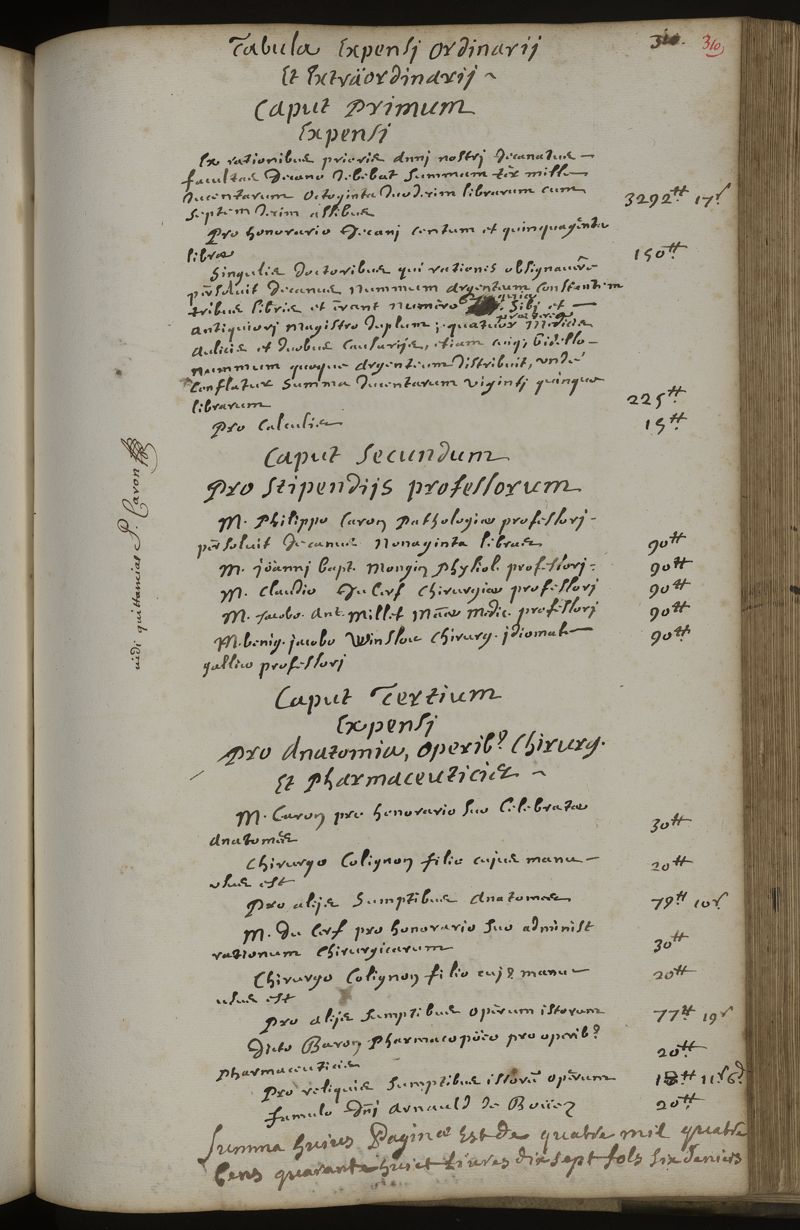 310. 310
Tabula Expensi Ordinarij
Et Extraordinarij ~
Caput Primum
Expensi
Ex rationibus prioris anni nostri Decanatus –
facultas Decano debebat summam ter mille
ducentarum octoginta duodecim librarum cum
septemdecim assibus 3292tt 17s
Pro honorario Decani centum et quinquaginta
libræ 150tt
Singulis doctoribus qui rationes obsignavere
persolvit Decanus nummum argenteum constantem
tribus libris et erant numero sibi et –
antiquiori magistro duplum; quatuor Medicis
aulicis et duobus causarijs, etiam cuiq; bidello –
nummum quoque argenteum distribuit, unde
conflatur summa ducentarum viginti quinque
librarum 225tt
Pro Calculis 15tt
Caput Secundum
Pro Stipendijs professorum
M. Philippo Caron Pathologiæ professori –
persolvit Decanus nonaginta libras 90tt
M. joanni bapt. Mongin Physiol. professori – 90tt
M. Claudio Du Cerf Chirurgiæ professori 90tt
M. Jacobo. Ant. Millet Maæ Medic. professori 90tt
M. benig. jacobo Winslou Chirurg. idiomate – 90tt
gallico professori
vidi quittancias P. Caron
Caput Tertium
Expensi
Pro Anatomia, operib9 Chirurg.
Et Pharmaceuticis ~
M. Caron pro honorario suo Celebratæ
anatomes 30tt
Chirurgo Colignon filio cujus manu –
usus est 20tt
Pro alijs sumptibus Anatomes 79tt 10s
M. Du Cerf pro honorario suo administ
rationum Chirurgicarum 30tt
Chirurgo Colignon filio cuj9 manu –
usus est 20tt
Pro alijs sumptibus operum istorum 77tt 19s
Dicto Baron Pharmacopœo pro operib9
Pharmaceuticis 20tt
Pro reliquis sumptibus istorū operum 18tt 11s 6d
famulo Dni Arnauld de Boüez 20tt
Summa huius Paginæ Est de quatre mil quatre
Cens quarante huict Liures dix sept sols six deniers